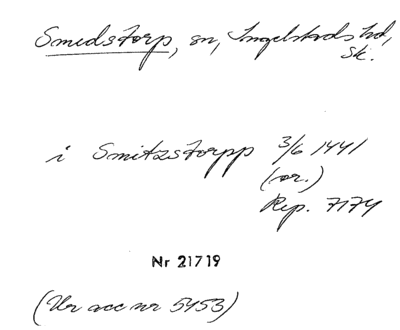 Smedstorp, sn, Ingelstads hd,
Sk.
i Smitzstorpp 3/6 1441
(or.)
Rep. 7174
Nr 21719
(Ur acc nr 5453)